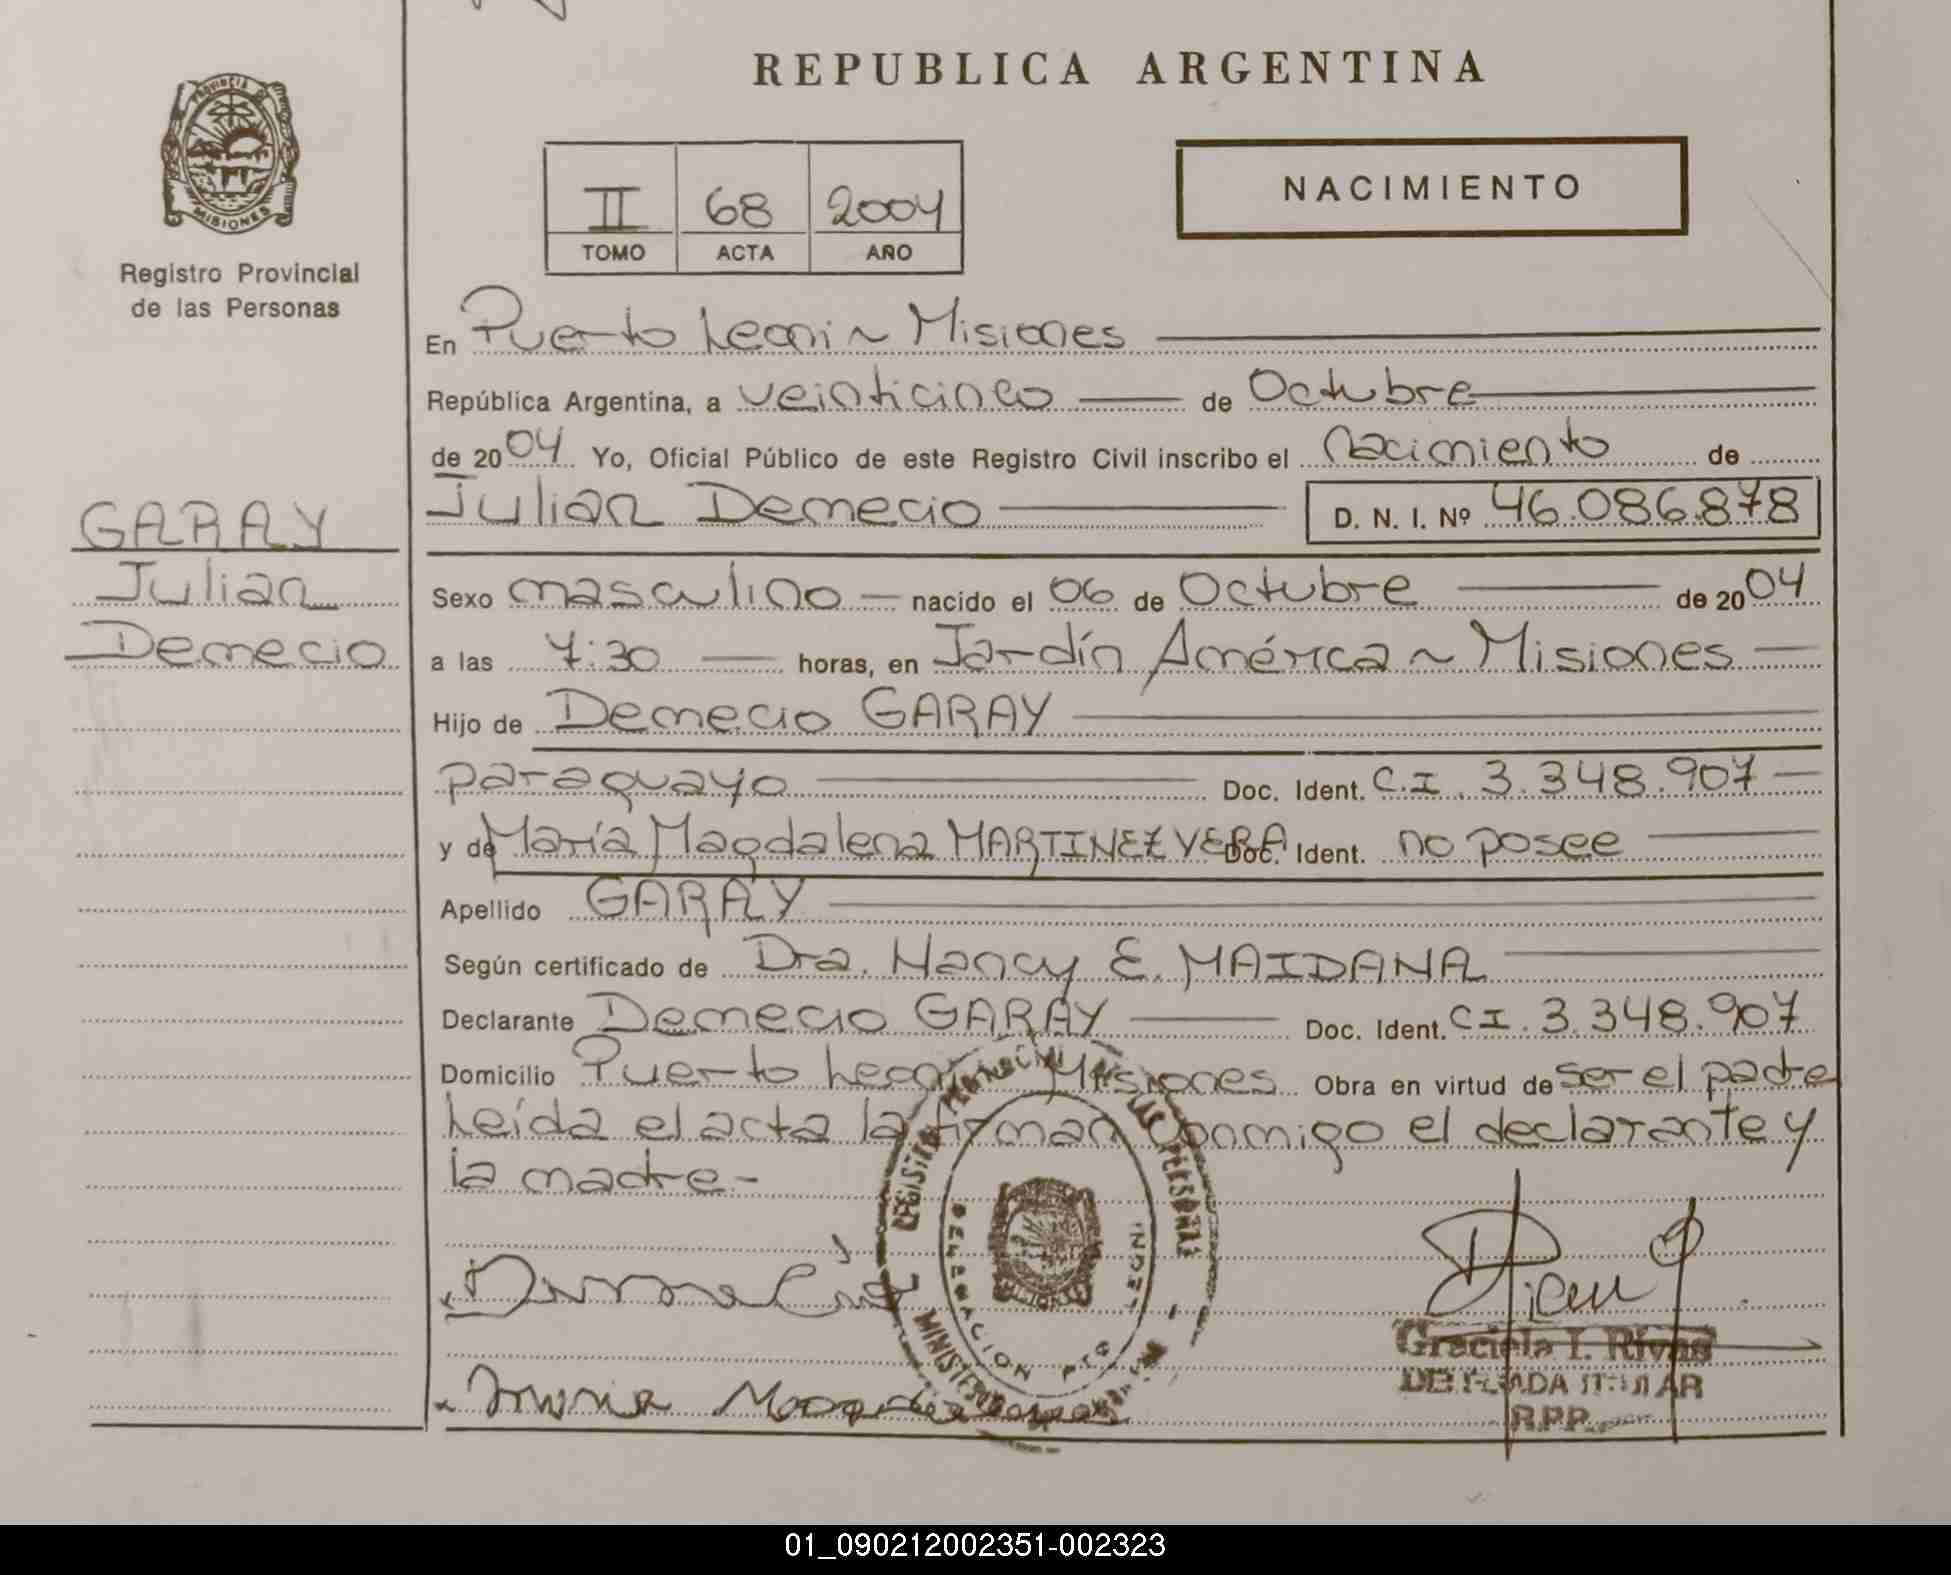 REPUBLICA ARGENTINA
PROVINCIA DE MISIONES
Registro Provincial
de las Personas
II 68 2004
TOMO ACTA AÑO
NACIMIENTO
GARAY
Julian
Demecio
En Puerto Leoni ~ Misiones
República Argentina, a veinticinco de Octubre
de 2004 Yo, Oficial Público de este Registro Civil inscribo el Nacimiento de
Julian Demecio D. N. I. Nº 46.086.878
Sexo masculino nacido el 06 de Octubre de 2004
a las 7:30 horas, en Jardín América ~ Misiones
Hijo de Demecio GARAY
paraguayo Doc. Ident. C.I. 3.348.907
y de María Magdalena MARTINEZ VERA Doc. Ident. no posee
Apellido GARAY
Según certificado de Dra. Nancy E. MAIDANA
Declarante Demecio GARAY Doc. Ident. CI. 3.348.907
Domicilio Puerto Leoni Misiones Obra en virtud de ser el padre
Leída el acta la firman conmigo el declarante y
la madre-
REGISTRO PROVINCIAL DE LAS PERSONAS
DELEGACION PTO LEONI
Graciela I. Rivas
DELEGADA TITULAR
R.P.P.
01_090212002351-002323